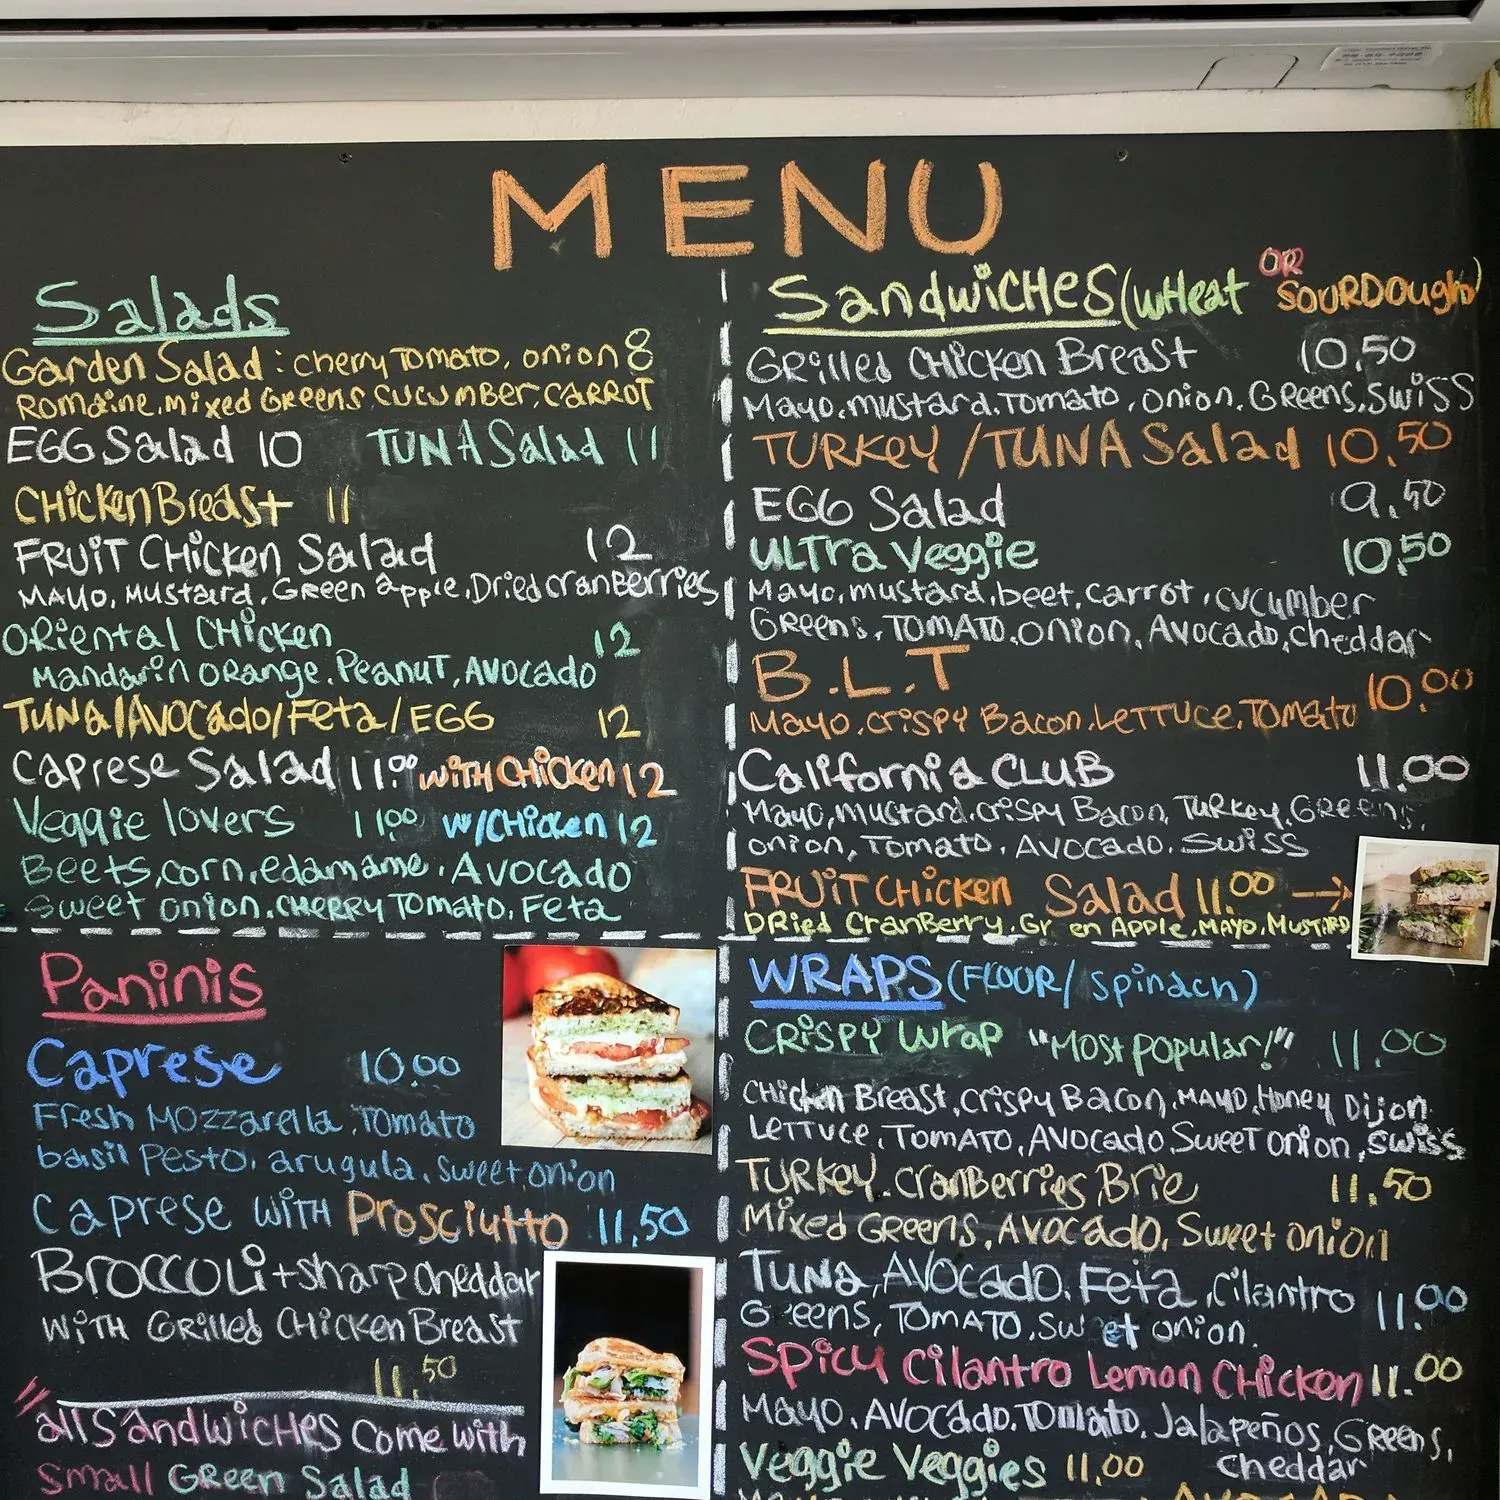 MENU
Salads
Garden Salad: cherry Tomato, onion 8
Romaine, Mixed Greens, cucumber, carrot
EGG Salad 10 TUNA Salad 11
Chicken Breast 11
Fruit Chicken Salad 12
Mayo, Mustard, Green apple, Dried cranberries
Oriental Chicken 12
Mandarin orange, Peanut, Avocado
Tuna/Avocado/Feta/EGG 12
Caprese Salad 11.00 with Chicken 12
Veggie lovers 11.00 w/Chicken 12
Beets, corn, edamame, Avocado
Sweet onion, cherry Tomato, Feta
Paninis
Caprese 10.00
Fresh Mozzarella, Tomato
basil Pesto, arugula, sweet onion
Caprese with Prosciutto 11.50
Broccoli + sharp cheddar
with Grilled Chicken Breast
11.50
all Sandwiches come with
Small Green Salad
Sandwiches (wheat OR SOURDough)
Grilled Chicken Breast 10.50
Mayo, mustard, Tomato, onion, Greens, Swiss
Turkey / TUNA Salad 10.50
EGG Salad 9.50
Ultra Veggie 10.50
Mayo, mustard, beet, carrot, cucumber
Greens, Tomato, onion, Avocado, cheddar
B.L.T 10.00
Mayo, crispy Bacon, Lettuce, Tomato
California CLUB 11.00
Mayo, mustard, crispy Bacon, Turkey, Greens,
onion, Tomato, Avocado, Swiss
Fruit Chicken Salad 11.00 →
Dried Cranberry, Gr en Apple, Mayo, Mustard
WRAPS (FLOUR/ spinach)
Crispy Wrap "Most popular!" 11.00
Chicken Breast, crispy Bacon, Mayo, Honey Dijon
Lettuce, Tomato, Avocado Sweet onion, Swiss
Turkey, cranberries, Brie 11.50
Mixed Greens, Avocado, Sweet onion
Tuna, Avocado, Feta, cilantro 11.00
Greens, Tomato, sweet onion.
Spicy cilantro Lemon Chicken 11.00
Mayo, Avocado, Tomato, Jalapeños, Greens,
cheddar
Veggie Veggies 11.00